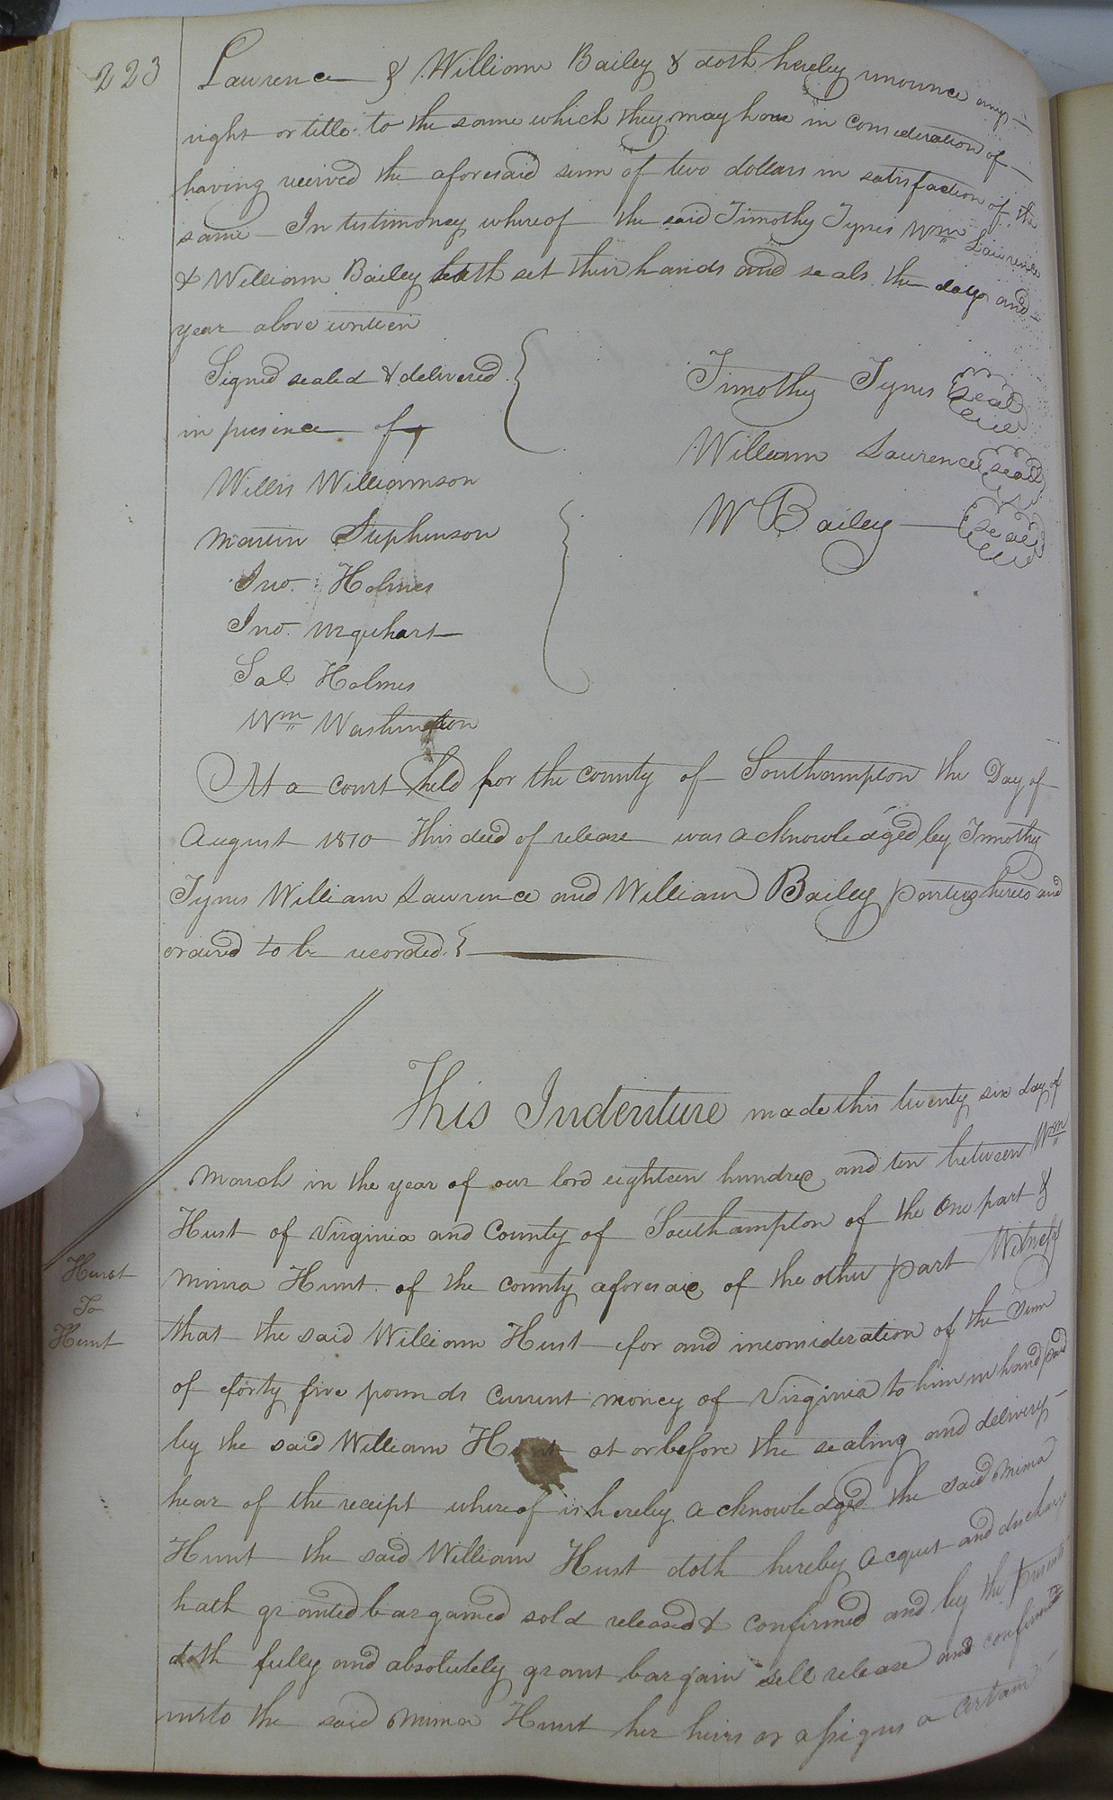 223
Lawrence & William Bailey & doth hereby renounce any
right or title to the same which they may have in consideration of
having received the aforesaid sum of two dollars in satisfaction of the
same In testimoney whereof the said Timothy Tynes Wm Lawrence
& William Bailey hath set their hands and seals the day and
year above written
Signed sealed & delivered
in presence of
Willis Williamson
Martin Stephenson
Jno. Holmes
Jno. Urquhart
Sol Holmes
Wm Washington
Timothy Tynes seal
William Lawrence seal
W Bailey seal
At a court held for the county of Southampton the Day of
August 1810 This deed of release was acknowledged by Timothy
Tynes William Lawrence and William Bailey parties hereto and
ordered to be recorded
This Indenture made this twenty six day of
March in the year of our lord eighteen hundred and ten between Wm
Hust of Virginia and County of Southampton of the One part &
Mima Hunt of the county aforesaid of the other part Witnesseth
Hurst
To
Hunt
that the said William Hust for and inconsideration of the Sum
of forty five pounds current money of Virginia to him in hand paid
by the said William at or before the sealing and delivery
hear of the receipt whereof is hereby acknowledged the said Mima
Hunt the said William Hust doth hereby acquit and discharge
hath granted bargained sold released & confirmed and by the presents
doth fully and absolutely grant bargain sell release and confirm
unto the said Mima Hunt her heirs or assigns a certain